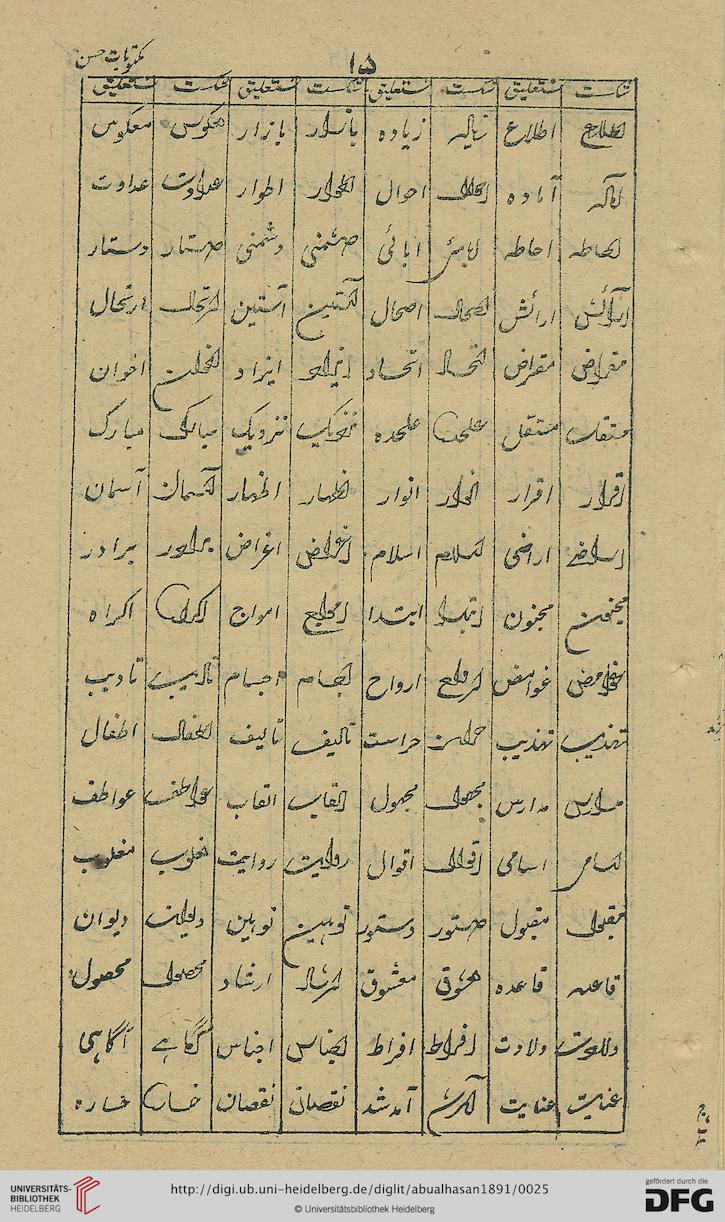 مکتوبات حسن
۱۵
شکست نستعلیق شکست نستعلیق شکست نستعلیق شکست نستعلیق
اطلاع اطلاع زیاده زیاده بازار بازار معکوس معکوس
آماده آماده احوال احوال اطوار اطوار عداوت عداوت
احاطه احاطه ابائی ابائی دشمنی دشمنی دستار دستار
ارائش ارائش اضحال اضحال آستین آستین ارتحال ارتحال
مقراض مقراض اتحاد اتحاد ایزاد ایزاد اخوان اخوان
مستقل مستقل علحده علحده نزدیک نزدیک مبارک مبارک
اقرار اقرار انوار انوار اظهار اظهار آسمان آسمان
اراضی اراضی اسلام اسلام اغراض اغراض برادر برادر
مجنون مجنون ابتدا ابتدا امواج امواج اکراه اکراه
غوامض غوامض ارواح ارواح اجسام اجسام تادیب تادیب
تهذیب تهذیب حراست حراست تالیف تالیف اطفال اطفال
مدارس مدارس مجهول مجهول القاب القاب عواطف عواطف
اسامی اسامی اقوال اقوال روایت روایت مغلوب مغلوب
مقبول مقبول دستور دستور توہین توہین دیوان دیوان
قاعده قاعده معشوق معشوق ارشاد ارشاد محصول محصول
ولادت ولادت افراط افراط اجناس اجناس آگاہی آگاہی
عنایت عنایت آمدشد آمدشد نقصان نقصان خساره خساره
UNIVERSITÄTS-
BIBLIOTHEK
HEIDELBERG
http://digi.ub.uni-heidelberg.de/diglit/abualhasan1891/0025
© Universitätsbibliothek Heidelberg
gefördert durch die
DFG